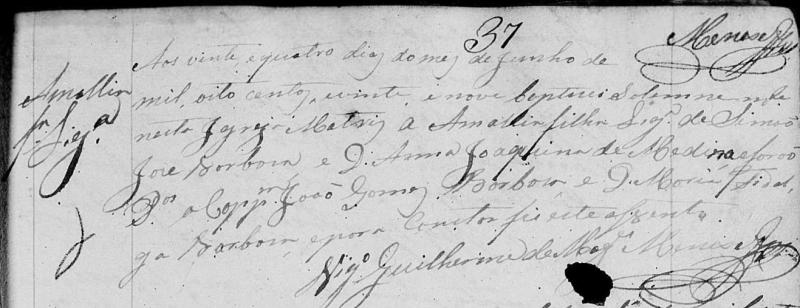 37
Menezes
Amallia
fª Ligª
Aos vinte e quatro dias do mez de Junho de
mil, oito centos, e vinte, e nove baptizei solemne mte
nesta Igreja Matriz a Amallia filha Ligª de Simaõ
Joze Barboza e D. Anna Joaquina de Medina e foraõ
Pos o Cappm Joaõ Gomes Barboza e D. Maria Fidal,
ga Barboza, e para Constar fis este assento.
Vigº Guilherme de Menezes